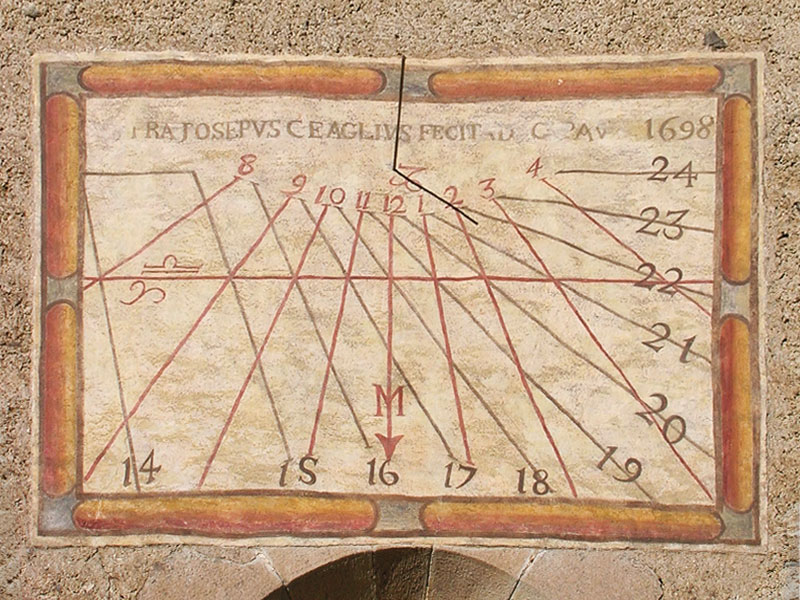 FRA IOSEPVS CEAGLIVS FECIT 1698
8 9 10 11 12 1 2 3 4
24
23
22
21
20
M
14 15 16 17 18 19